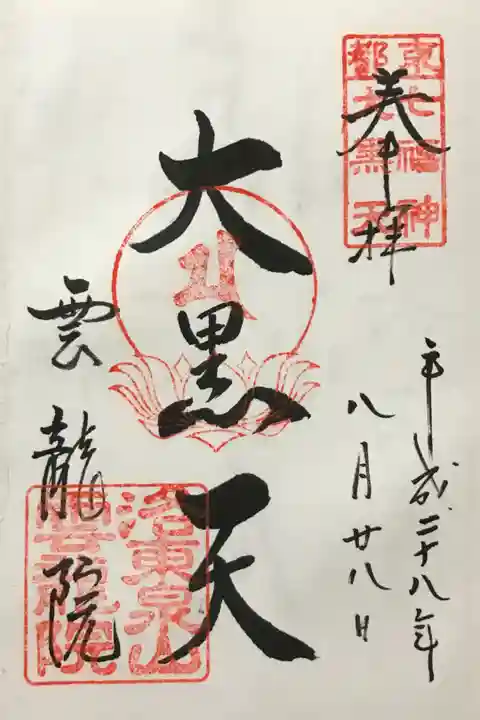 京都
七福神
大黒天
奉拝
平成二十八年
八月廿八日
大黒天
雲龍院
洛東泉山
雲龍院